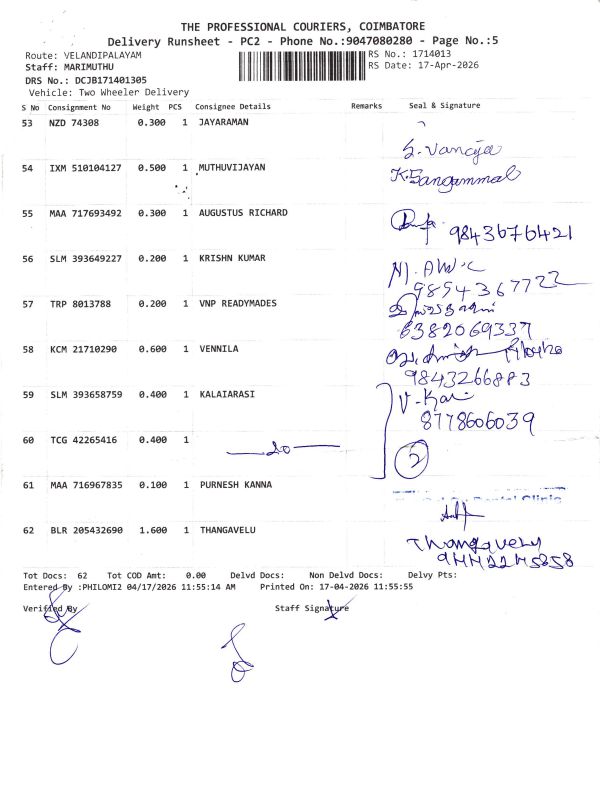 THE PROFESSIONAL COURIERS, COIMBATORE
Delivery Runsheet - PC2 - Phone No.:9047080280 - Page No.:5
Route: VELANDIPALAYAM RS No.: 1714013
Staff: MARIMUTHU RS Date: 17-Apr-2026
DRS No.: DCJB171401305
Vehicle: Two Wheeler Delivery
S No Consignment No Weight PCS Consignee Details Remarks Seal & Signature
53 NZD 74308 0.300 1 JAYARAMAN
S. Vancya
54 IXM 510104127 0.500 1 MUTHUVIJAYAN K. Sangammal
55 MAA 717693492 0.300 1 AUGUSTUS RICHARD
9843676421
56 SLM 393649227 0.200 1 KRISHN KUMAR
9894367722
57 TRP 8013788 0.200 1 VNP READYMADES
6382069337
58 KCM 21710290 0.600 1 VENNILA
9843266883
59 SLM 393658759 0.400 1 KALAIARASI V-Kai
8778606039
60 TCG 42265416 0.400 1 do 2
61 MAA 716967835 0.100 1 PURNESH KANNA
Dental Clinic
62 BLR 205432690 1.600 1 THANGAVELU
Thangavelu
Tot Docs: 62 Tot COD Amt: 0.00 Delvd Docs: Non Delvd Docs: Delvy Pts:
Entered By :PHILOMI2 04/17/2026 11:55:14 AM Printed On: 17-04-2026 11:55:55
Verified By Staff Signature